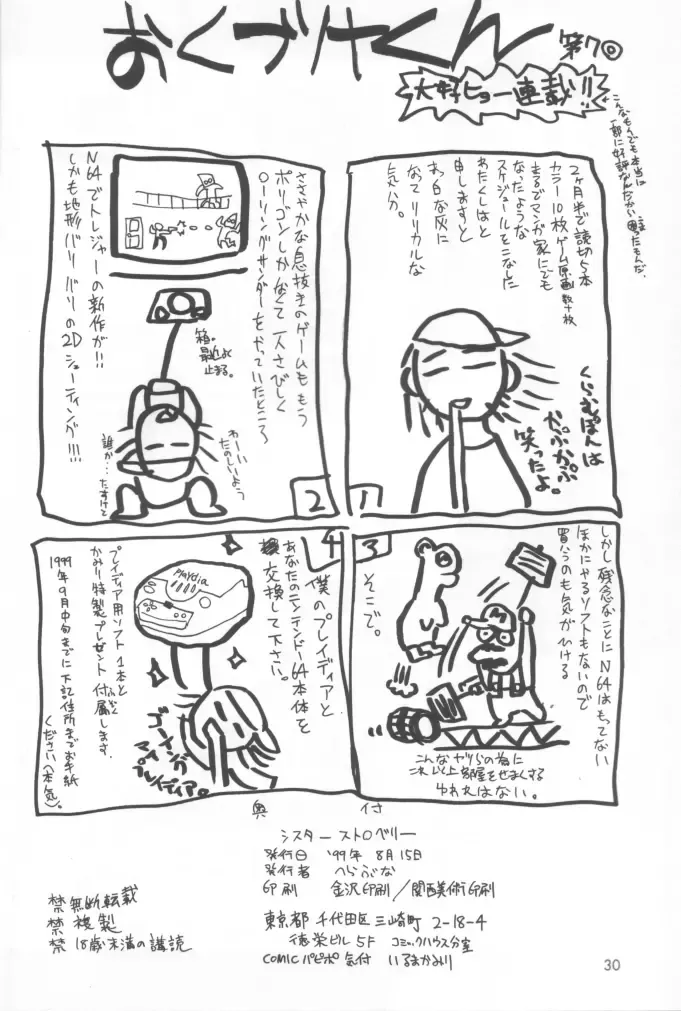 おくづけくん
第7回
大好ヒョー連載!!
こんなもんでも本当に
一部に好評なんだから困ったもんだ。
2ヶ月半で読切5本
カラー10枚ゲーム原画数十枚
まるでマンガ家にでも
なったような
スケジュールをこなした
わたくしはと
申しますと
まっ白な灰に
なってリリカルな
気分。
くらむぽんは
かぷかぷ
笑ったよ。
1
ささやかな息抜きのゲームももう
ポリゴンしかなくて一人さびしく
ローリングサンダーをやっていたところ
N64でトレジャーの新作が!!
しかも地形バリバリの2Dシューティング!!!
箱。
最近よく
止まる。
わーい
たのしいよう
誰か…たすけて
2
しかし残念なことにN64はもってない
ほかにやるソフトもないので
買うのも気がひける
そこで。
こんなヤツらの為に
これ以上部屋をせまくする
ゆわれはない。
3
4
僕のプレイディアと
あなたのニンテンドー64本体を
交換して下さい。
Playdia
プレイディア用ソフト1本と
かみり特製プレゼント付属します。
1999年9月中旬までに下記住所までお手紙
ください(本気)。
ゴーイング
マイ
プレイディア。
奥付
シスターストロベリー
発行日 '99年 8月15日
発行者 へらぶな
印刷 金沢印刷/関西美術印刷
東京都千代田区三崎町 2-18-4
徳栄ビル5F コミックハウス分室
COMICパピポ気付 いるまかみり
禁 無断転載
禁 複製
禁 18歳未満の講読
30